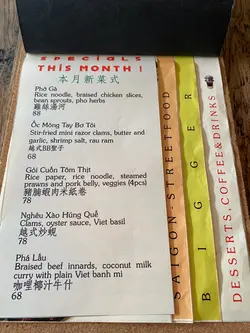 SPECIALS
THIS MONTH !
本月新菜式
Phở Gà
Rice noodle, braised chicken slices,
bean sprouts, pho herbs
雞絲湯河
88
Ốc Móng Tay Bơ Tỏi
Stir-fried mini razor clams, butter and
garlic, shrimp salt, rau ram
越式BB聖子
68
Gỏi Cuốn Tôm Thịt
Rice paper, rice noodle, steamed
prawns and pork belly, veggies (4pcs)
豬腩蝦肉米紙卷
78
Nghêu Xào Húng Quế
Clams, oyster sauce, Viet basil
越式炒蜆
78
Phá Lấu
Braised beef innards, coconut milk
curry with plain Viet banh mi
咖哩椰汁牛什
68
SAIGON-STREETFOOD
BIGGER
DESSERTS,COFFEE&DRINKS